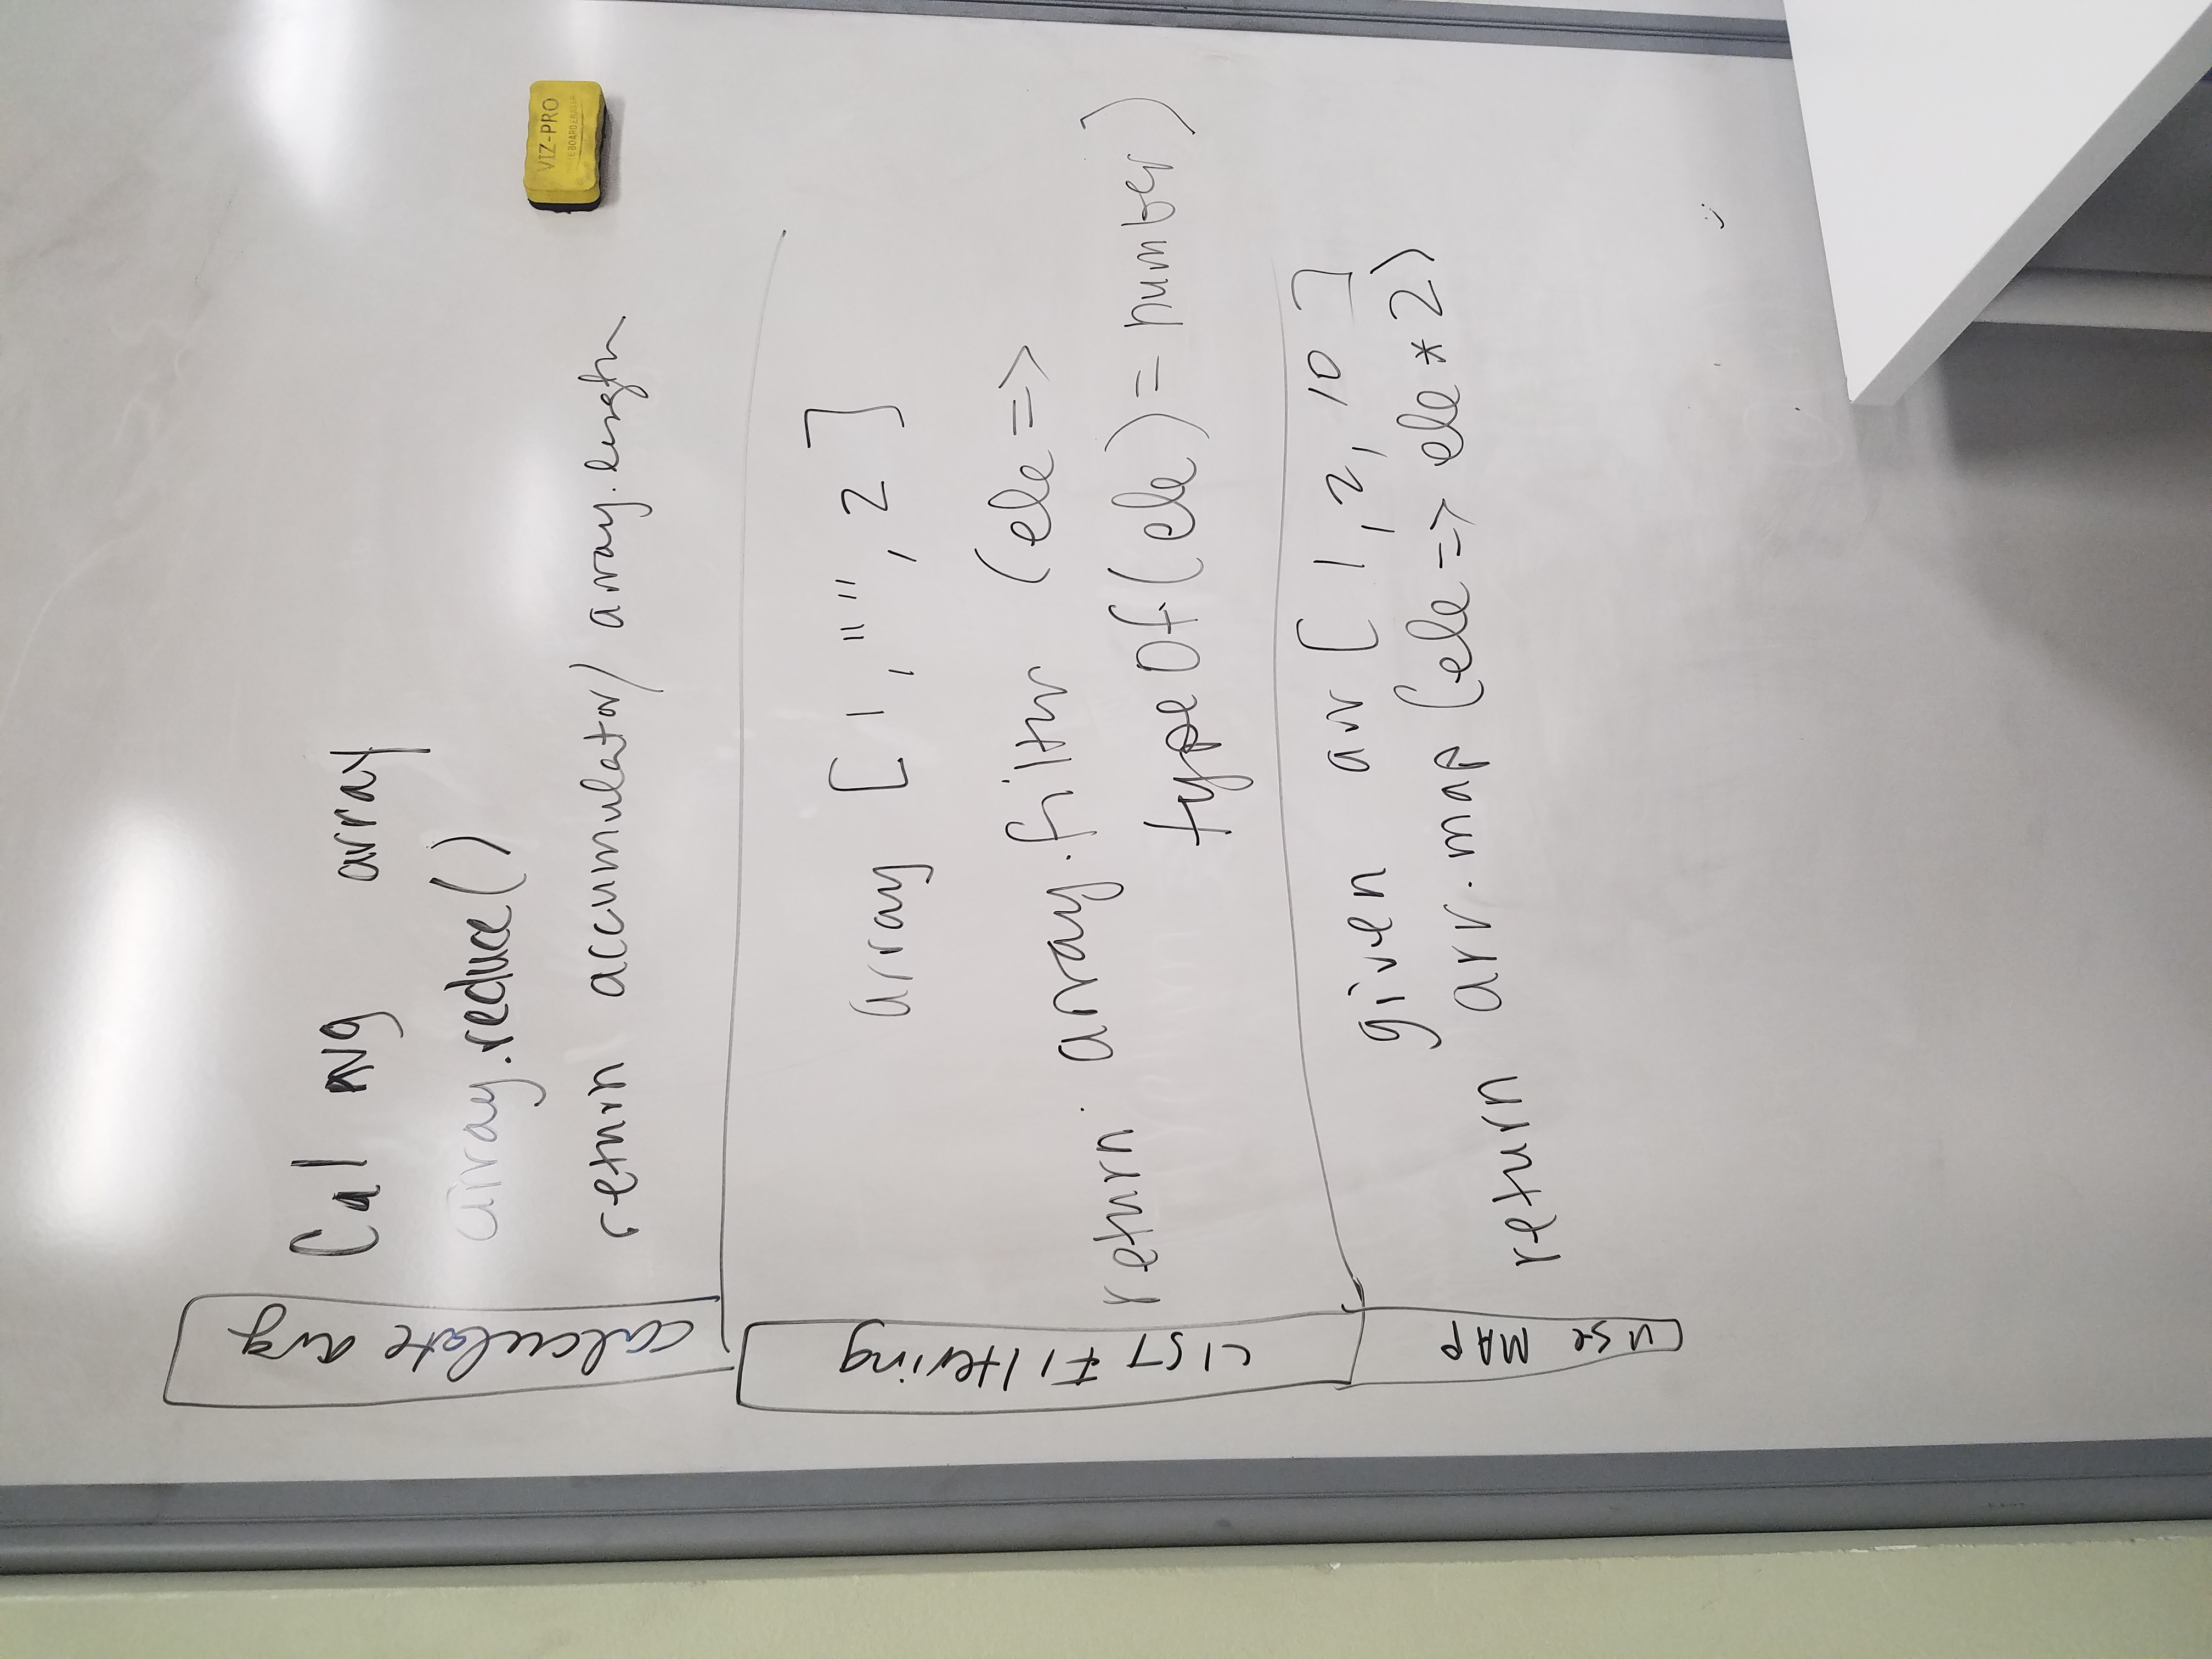 calculate avg
Cal AVg array
array.reduce()
return accumulator/ array.length
VIZ-PRO
LIST FIltering
array [1, "", 2]
return array.filter (ele =>
typeOf(ele) = number)
use MAP
given arr [1, 2, 10]
return arr.map (ele => ele * 2)